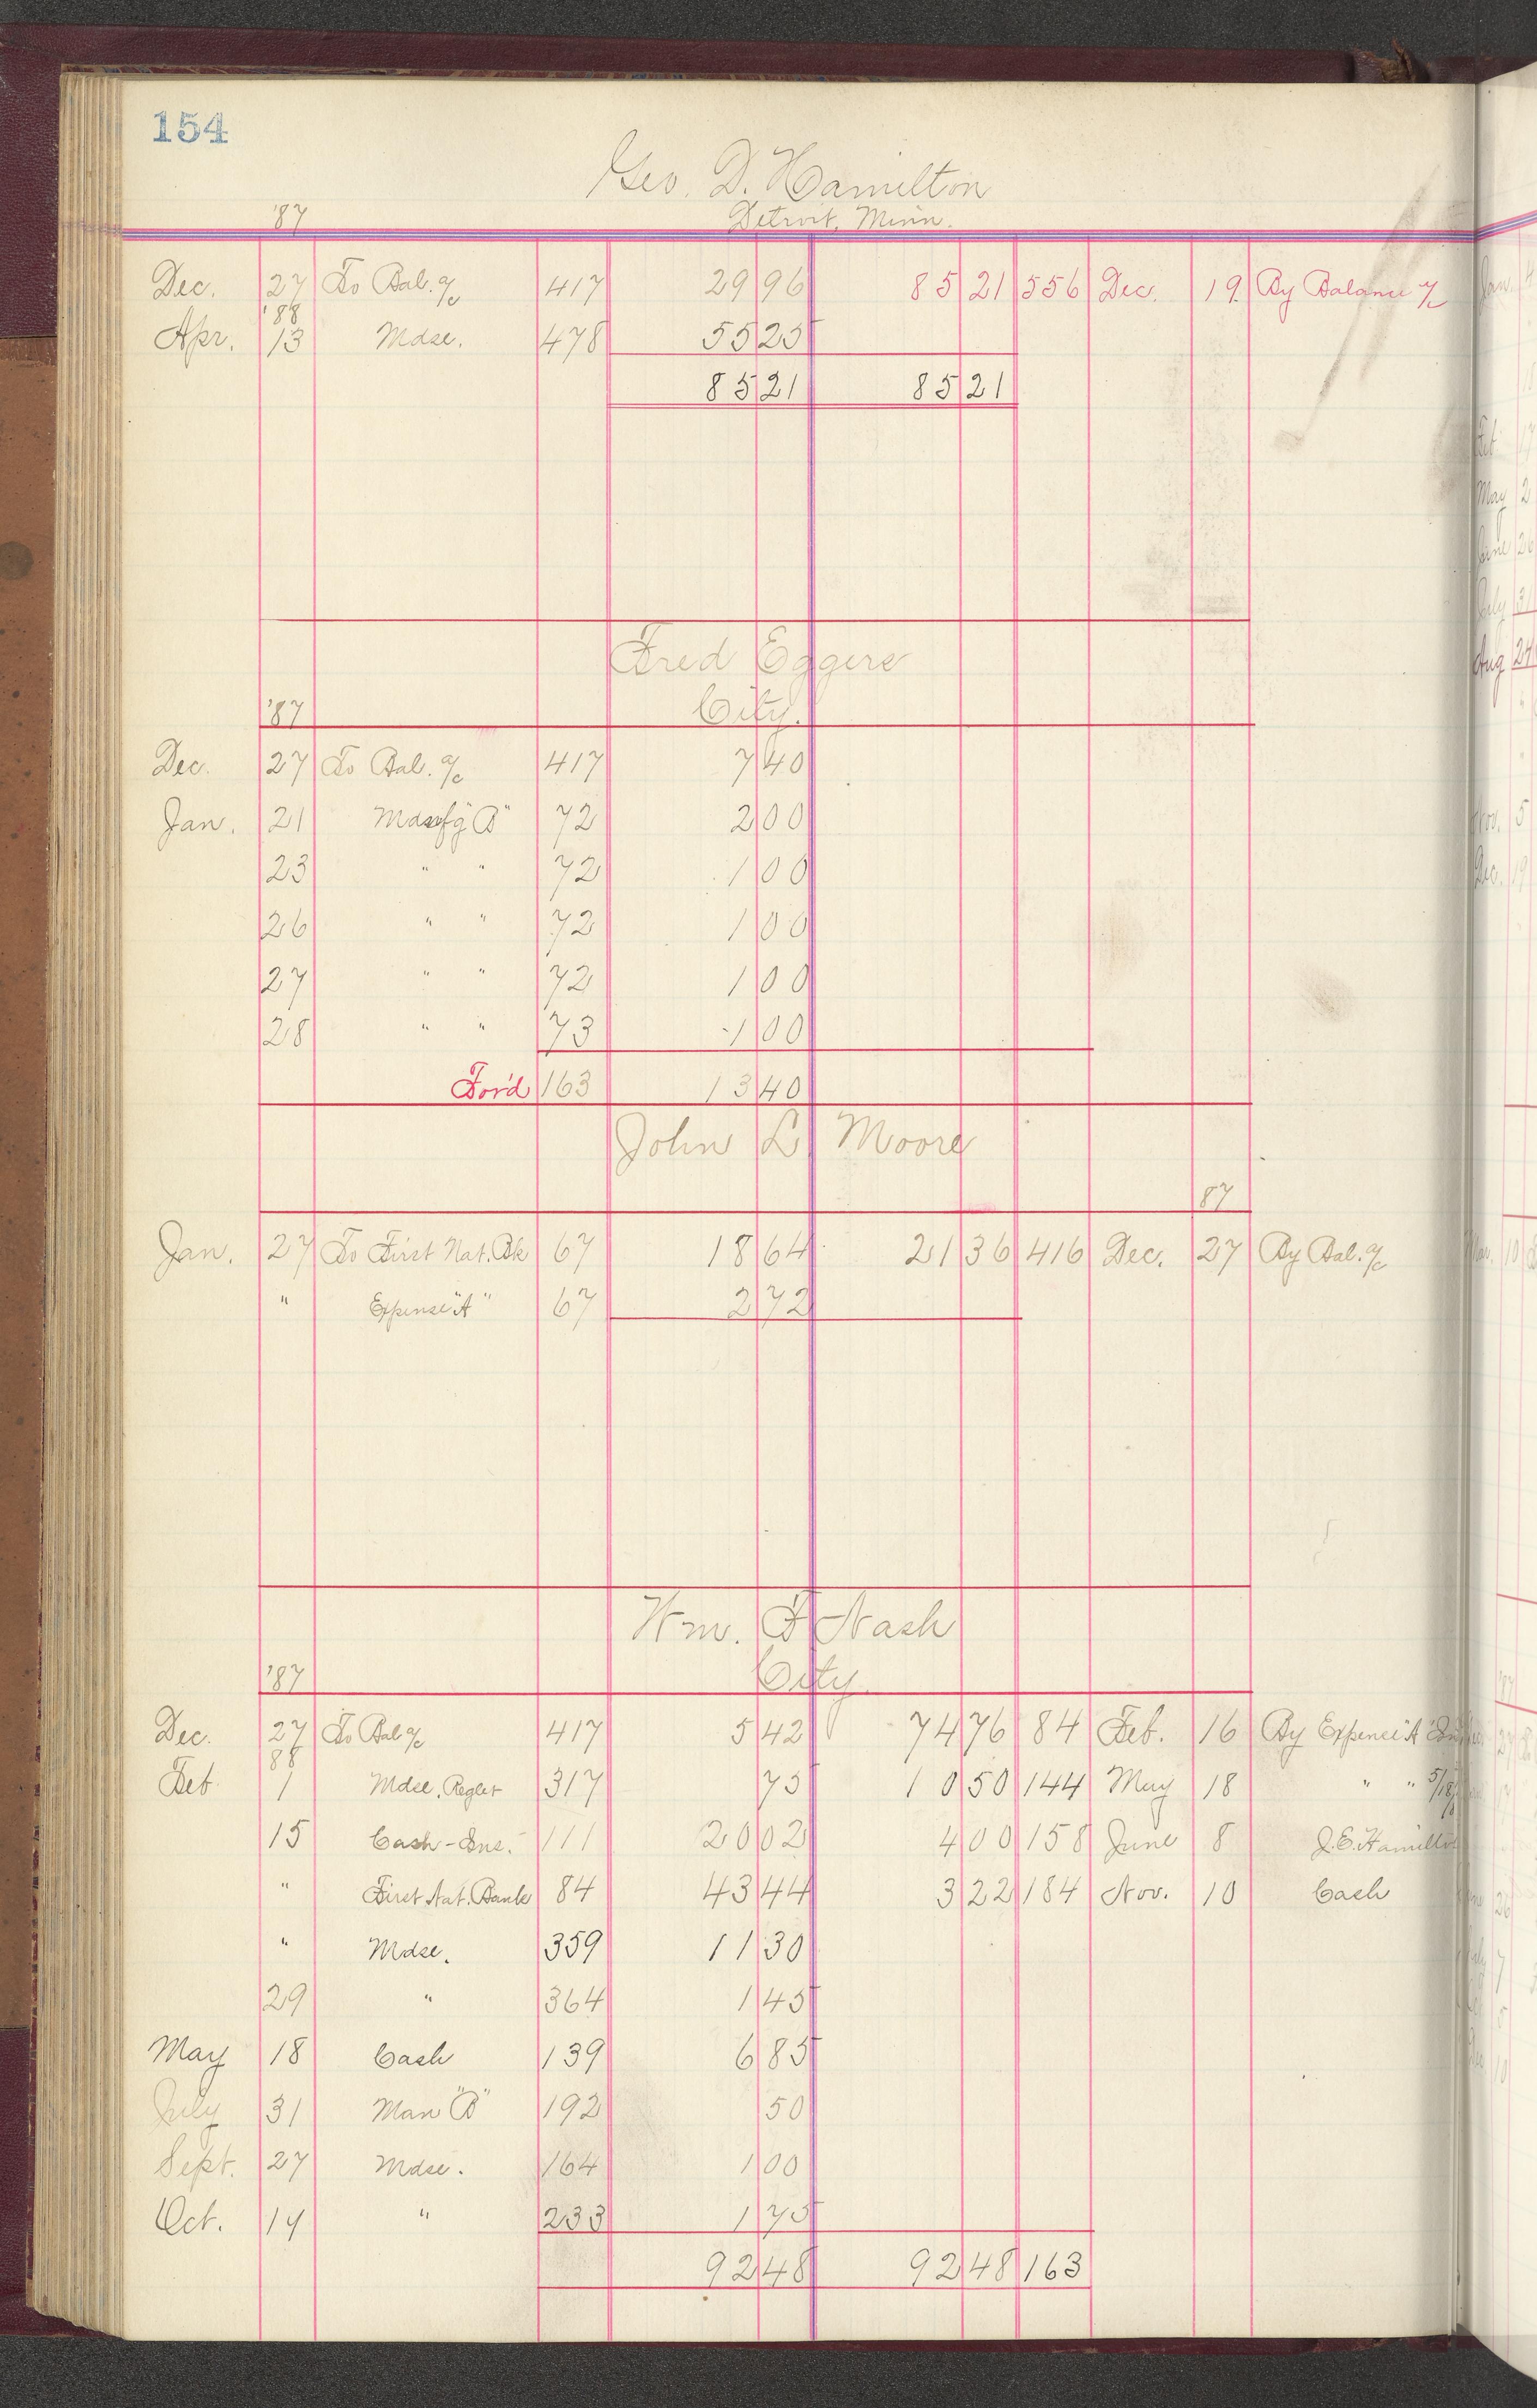 154
Geo. D. Hamilton
'87 Detroit, Minn.
Dec. 27 To Bal. a/c 417 29 96 85 21 556 Dec. 19 By Balance a/c
'88
Apr. 13 Mdse. 478 55 25
85 21 85 21
Fred Eggers
'87 City.
Dec. 27 To Bal. a/c 417 7 40
Jan. 21 "B" 72 2 00
23 " " 72 1 00
26 " " 72 1 00
27 " " 72 1 00
28 " " 73 1 00
For'd 163 13 40
John L Moore
87
Jan. 27 To First Nat. Bk 67 18 64 21 36 416 Dec. 27 By Bal. a/c
" Expense "A" 67 2 72
Wm. F Nash
'87 City
Dec. 27 To Bal a/c 417 5 42 74 76 84 Feb. 16 By Expense "A"
88
Feb 1 Mdse. Reglet 317 75 10 50 144 May 18 " "
15 Cash - Ins. 111 20 02 4 00 158 June 8 J.E. Hamilton
" First Nat. Bank 84 43 44 3 22 184 Nov. 10 Cash
" Mdse. 359 11 30
29 " 364 1 45
May 18 Cash 139 6 85
July 31 Man "B" 192 50
Sept. 27 Mdse. 164 1 00
Oct. 14 " 233 1 75
92 48 92 48 163